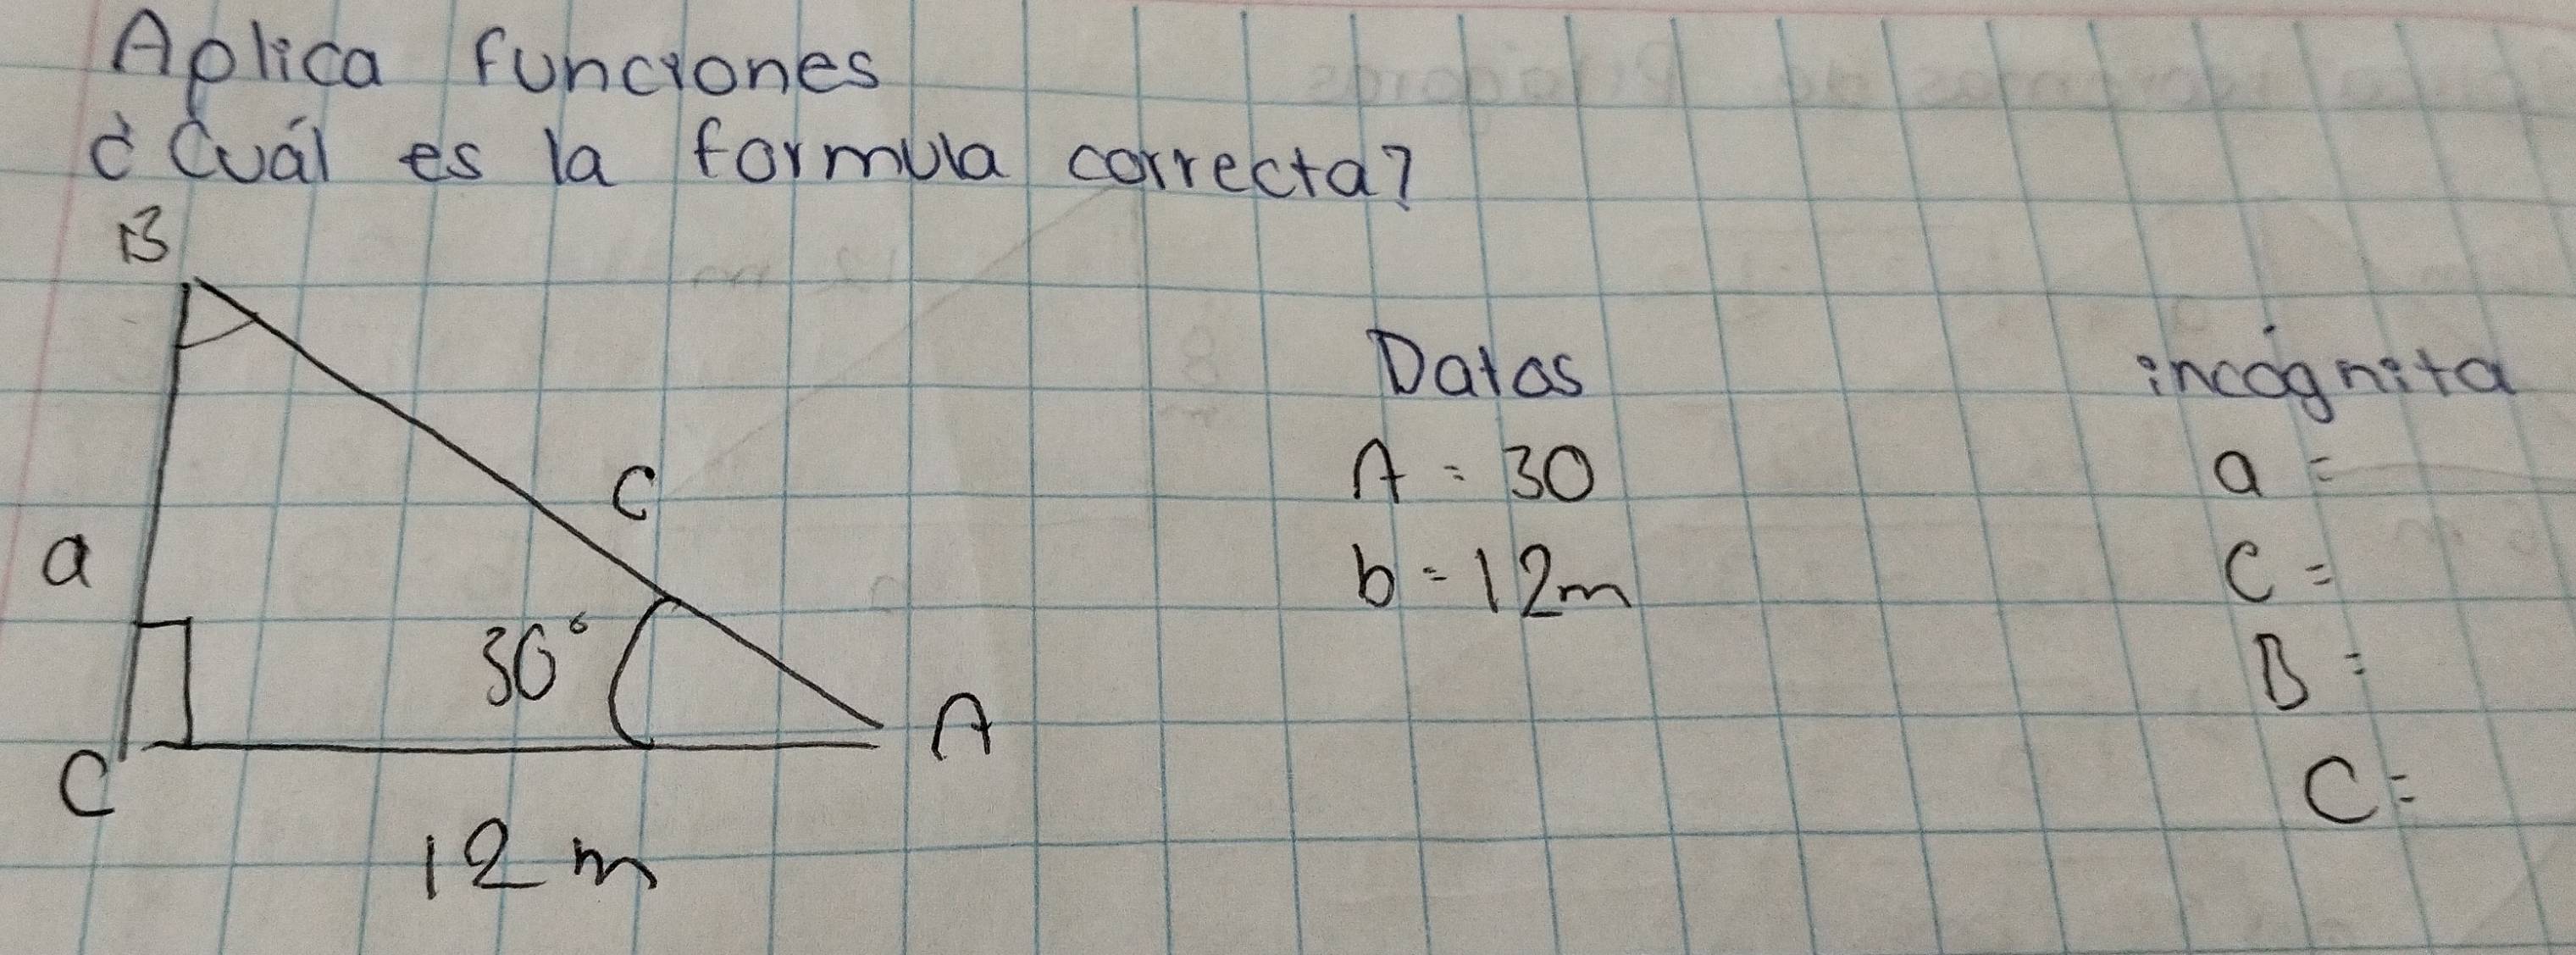 Aplica funciones
¿Cuál es la formula correcta?
B
C
a
30°
A
C
12 m
Datos
A = 30
b = 12m
incógnita
a =
C =
B =
C =